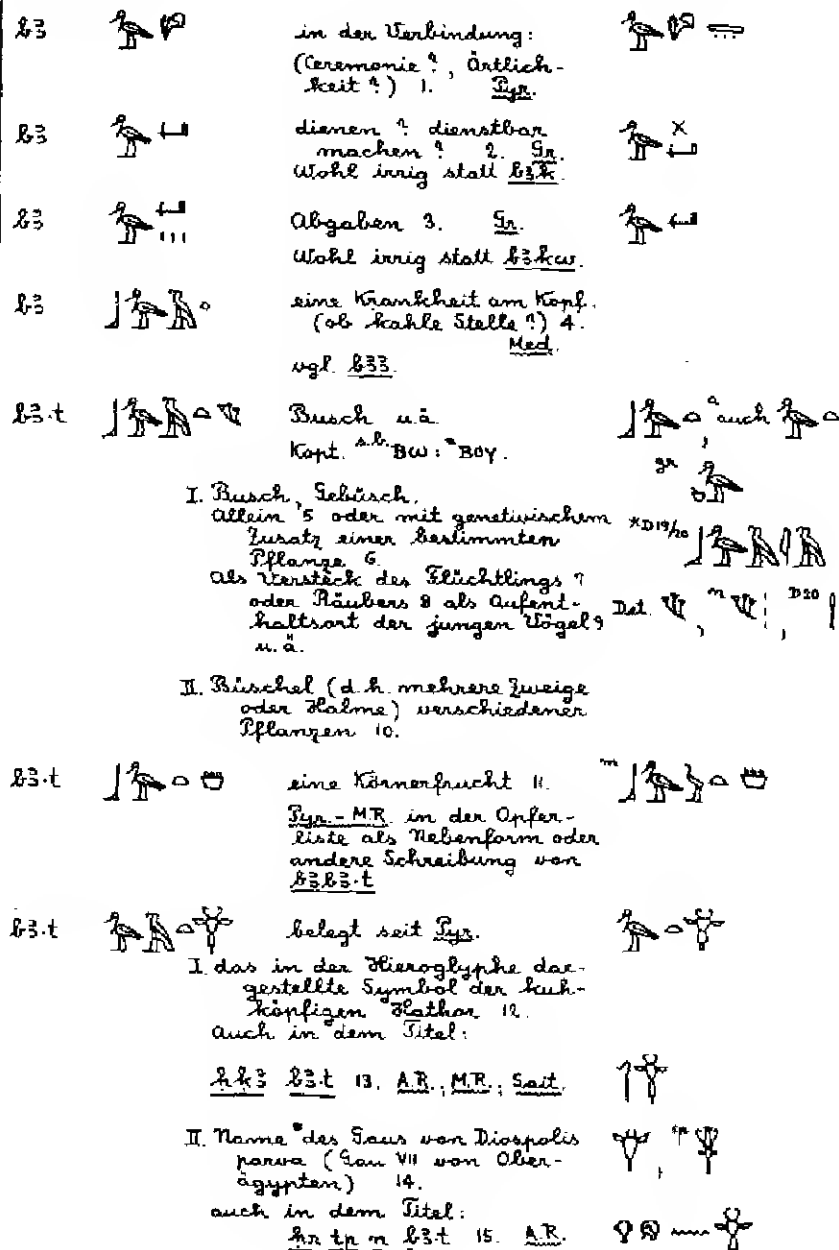 bꜣ in der Verbindung:
(Ceremonie?, Örtlich-
keit?) 1. Pyr.
bꜣ dienen? dienstbar
machen? 2. Gr.
Wohl irrig statt bꜣk.
bꜣ Abgaben 3. Gr.
Wohl irrig statt bꜣkw.
bꜣ eine Krankheit am Kopf.
(ob kahle Stelle?) 4.
Med.
vgl. bꜣꜣ.
bꜣ.t Busch u.ä. auch
Kopt. s.b. ⲂⲰ: ⲂⲞⲨ.
gr
I. Busch, Gebüsch.
Allein 5 oder mit genetivischem *D19/20
Zusatz einer bestimmten
Pflanze 6.
Als Versteck des Flüchtlings 7
oder Räubers 8 als Aufent- Det. , m , D20
haltsort der jungen Vögel 9
u.ä.
II. Büschel (d.h. mehrere Zweige
oder Halme) verschiedener
Pflanzen 10.
bꜣ.t eine Körnerfrucht 11. m
Pyr.-M.R. in der Opfer-
liste als Nebenform oder
andere Schreibung von
bꜣbꜣ.t
bꜣ.t belegt seit Pyr.
I. das in der Hieroglyphe dar-
gestellte Symbol der kuh-
köpfigen Hathor 12.
auch in dem Titel:
ḥḳꜣ bꜣ.t 13. A.R.; M.R.; Sait.
II. Name des Gaus von Diospolis
parva (Gau VII von Ober-
ägypten) 14.
auch in dem Titel:
ḥr tp n bꜣ.t 15. A.R.